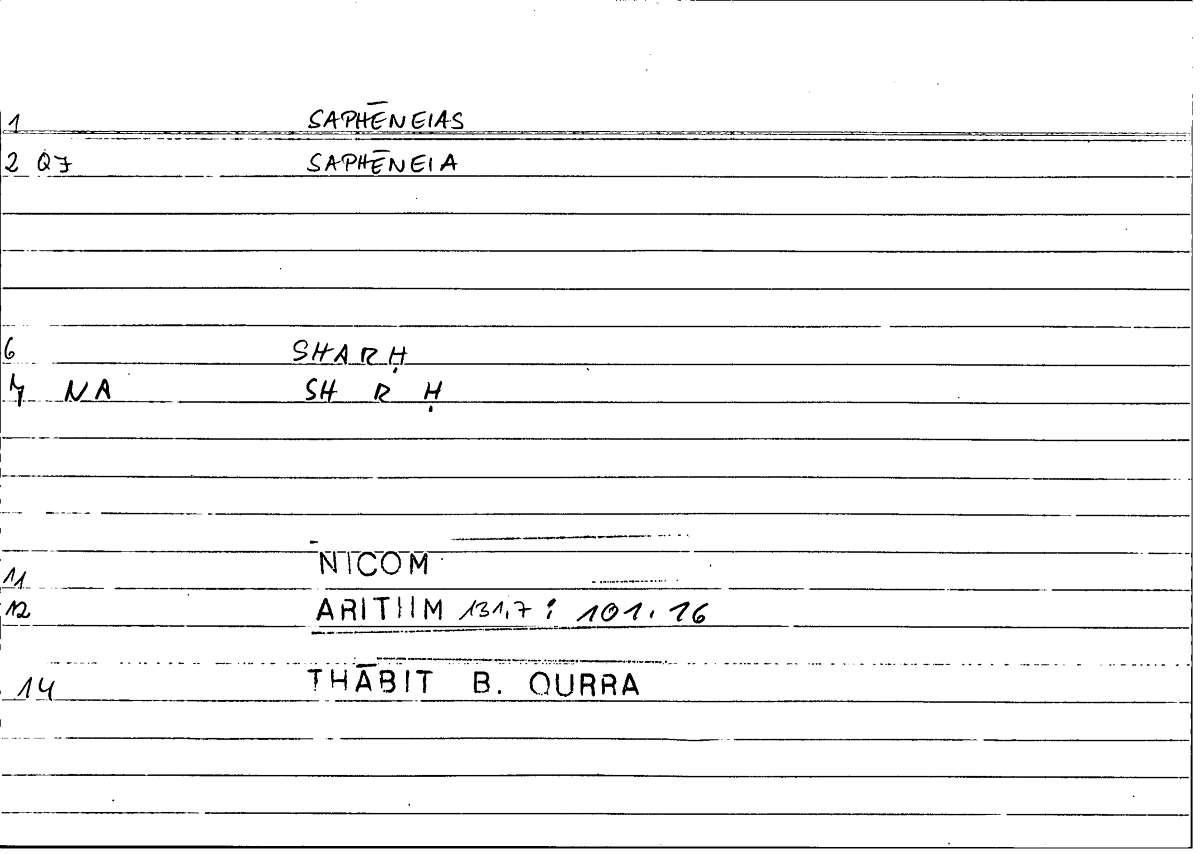 1 SAPHĒNEIAS
2 Q7 SAPHĒNEIA
6 SHARḤ
7 NA SH R Ḥ
11 NICOM
12 ARITHM 131,7 : 101.16
14 THĀBIT B. QURRA